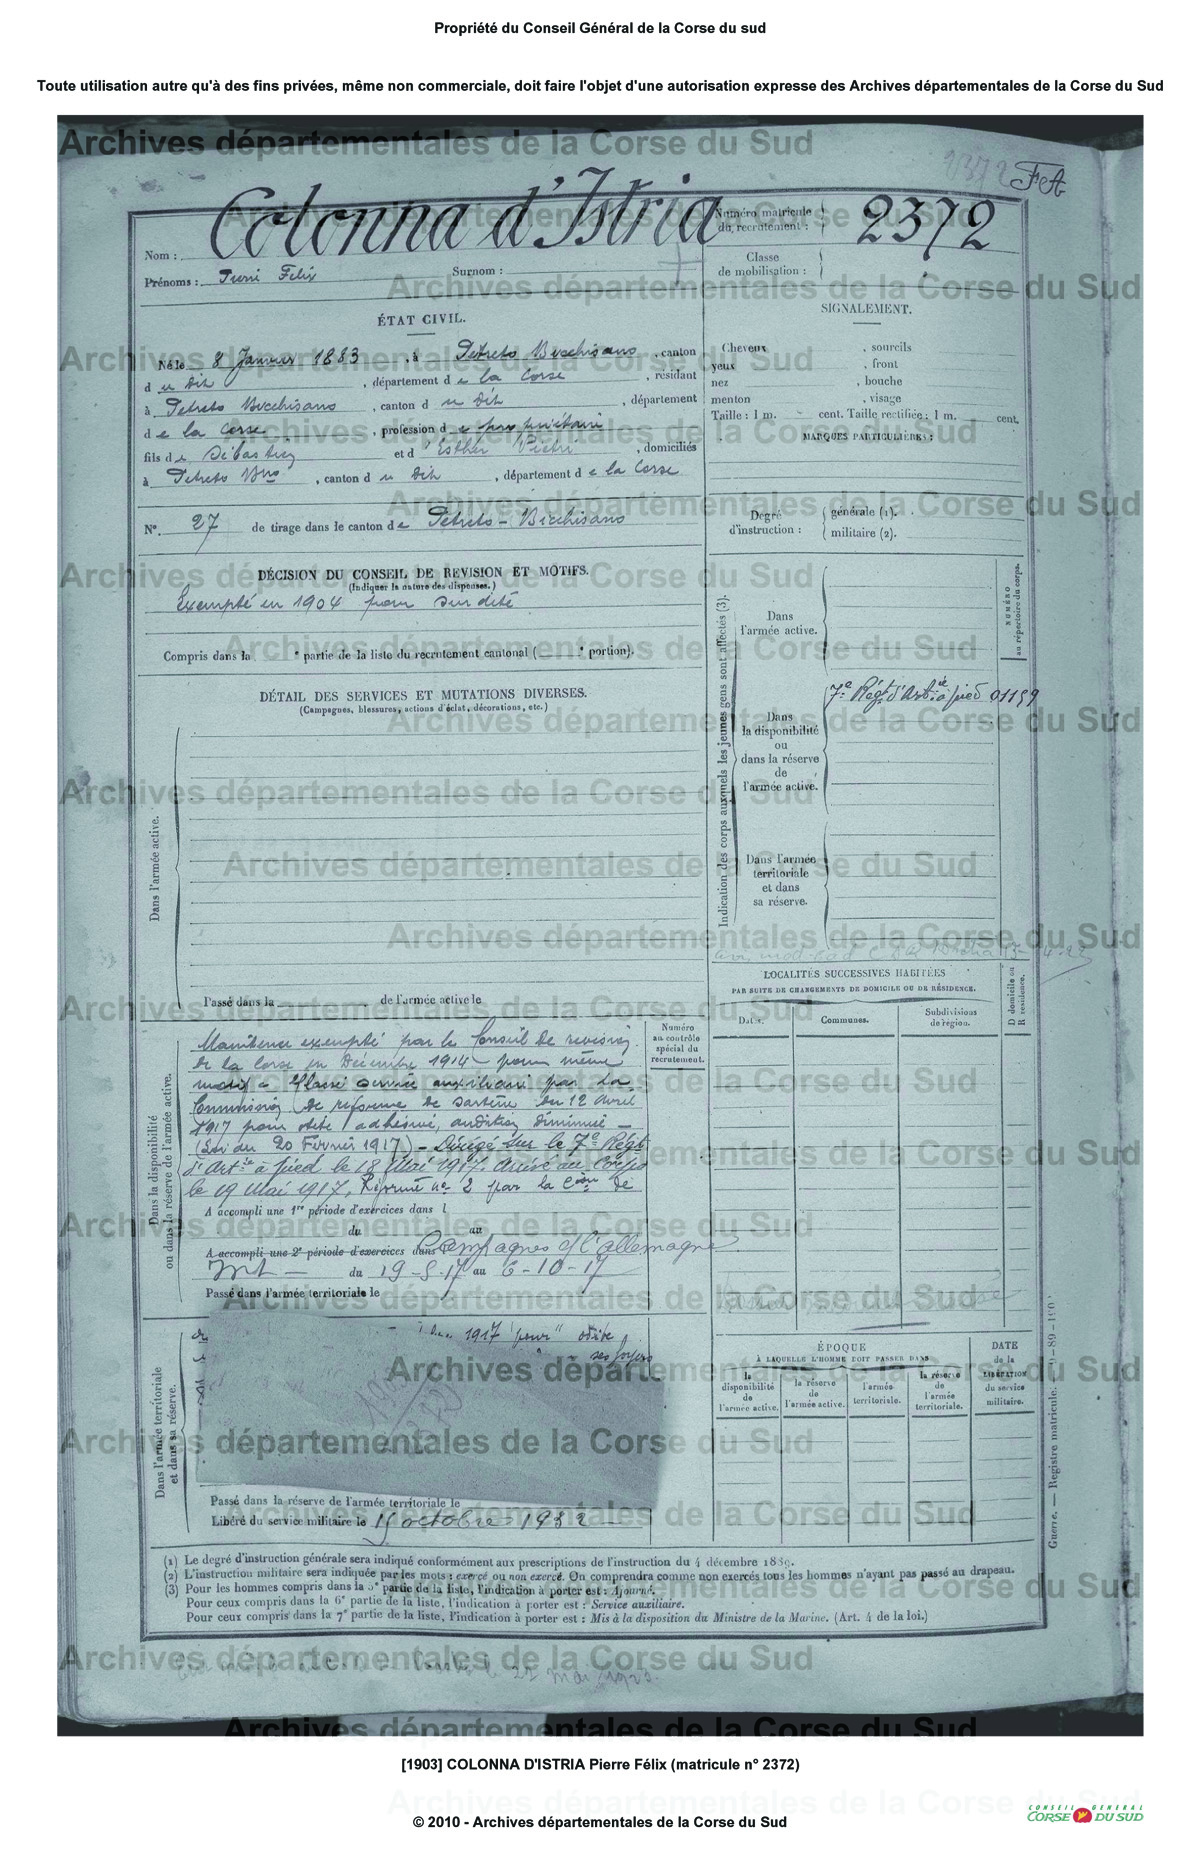 Propriété du Conseil Général de la Corse du sud
Toute utilisation autre qu'à des fins privées, même non commerciale, doit faire l'objet d'une autorisation expresse des Archives départementales de la Corse du Sud
Archives départementales de la Corse du Sud
2372 FA
Nom : Colonna d'Istria
Numéro matricule du recrutement : 2372
Prénoms : Pierri Felix Surnom :
Classe de mobilisation :
ÉTAT CIVIL.
Né le 8 Janvier 1883, à Petreto Bicchisano, canton
d u dit, département d e la Corse, résidant
à Petreto Bicchisano, canton d u dit, département
d e la Corse, profession d e propriétaire
fils d e Sébastien et d' Esther Pietri, domiciliés
à Petreto Bno, canton d u dit, département d e la Corse
N° 27 de tirage dans le canton de Petreto-Bicchisano
DÉCISION DU CONSEIL DE REVISION ET MOTIFS.
(Indiquer la nature des dispenses.)
Exempté en 1904 pour surdité
Compris dans la e partie de la liste du recrutement cantonal ( e portion).
DÉTAIL DES SERVICES ET MUTATIONS DIVERSES.
(Campagnes, blessures, actions d'éclat, décorations, etc.)
Dans l'armée active.
Passé dans la de l'armée active le
SIGNALEMENT.
Cheveux , sourcils
yeux , front
nez , bouche
menton , visage
Taille : 1 m. cent. Taille rectifiée : 1 m. cent.
MARQUES PARTICULIÈRES :
Degré d'instruction : générale (1).
militaire (2).
Indication des corps auxquels les jeunes gens sont affectés (3).
NUMÉRO au répertoire du corps.
Dans l'armée active.
Dans la disponibilité ou dans la réserve de l'armée active.
7e Régt d'Artie à pied 01159
Dans l'armée territoriale et dans sa réserve.
LOCALITÉS SUCCESSIVES HABITÉES
PAR SUITE DE CHANGEMENTS DE DOMICILE OU DE RÉSIDENCE.
Dates. Communes. Subdivisions de région. D domicile ou R résidence.
Dans la disponibilité ou dans la réserve de l'armée active.
Numéro au contrôle spécial du recrutement.
Maintenu exempté par le Conseil de revision
de la Corse en Décembre 1914 pour même
motif - Classé service auxiliaire par la
Commission de réforme de Sartène du 12 avril
1917 pour otite adhésive, audition diminuée -
(Loi du 20 Février 1917) - Dirigé sur le 7e Régt
d'Artie à pied le 18 Mai 1917. Arrivé au Corps
le 19 Mai 1917, Réformé n° 2 par la Con de
A accompli une 1re période d'exercices dans l
du au
A accompli une 2e période d'exercices dans
Campagnes c/ l'allemagne
Int - du 19-5-17 au 6-10-17
Passé dans l'armée territoriale le
Dans l'armée territoriale et dans sa réserve.
1917 pour" otite
ses foyers
Passé dans la réserve de l'armée territoriale le
Libéré du service militaire le 15 octobre 1932
ÉPOQUE
À LAQUELLE L'HOMME DOIT PASSER DANS
la disponibilité de l'armée active. la réserve de l'armée active. l'armée territoriale. la réserve de l'armée territoriale.
DATE de la LIBÉRATION du service militaire.
(1) Le degré d'instruction générale sera indiqué conformément aux prescriptions de l'instruction du 4 décembre 1889.
(2) L'instruction militaire sera indiquée par les mots : exercé ou non exercé. On comprendra comme non exercés tous les hommes n'ayant pas passé au drapeau.
(3) Pour les hommes compris dans la 5e partie de la liste, l'indication à porter est : Ajourné.
Pour ceux compris dans la 6e partie de la liste, l'indication à porter est : Service auxiliaire.
Pour ceux compris dans la 7e partie de la liste, l'indication à porter est : Mis à la disposition du Ministre de la Marine. (Art. 4 de la loi.)
Guerre. — Registre matricule.
22 mai 1923.
[1903] COLONNA D'ISTRIA Pierre Félix (matricule n° 2372)
© 2010 - Archives départementales de la Corse du Sud
CONSEIL GÉNÉRAL
CORSE DU SUD